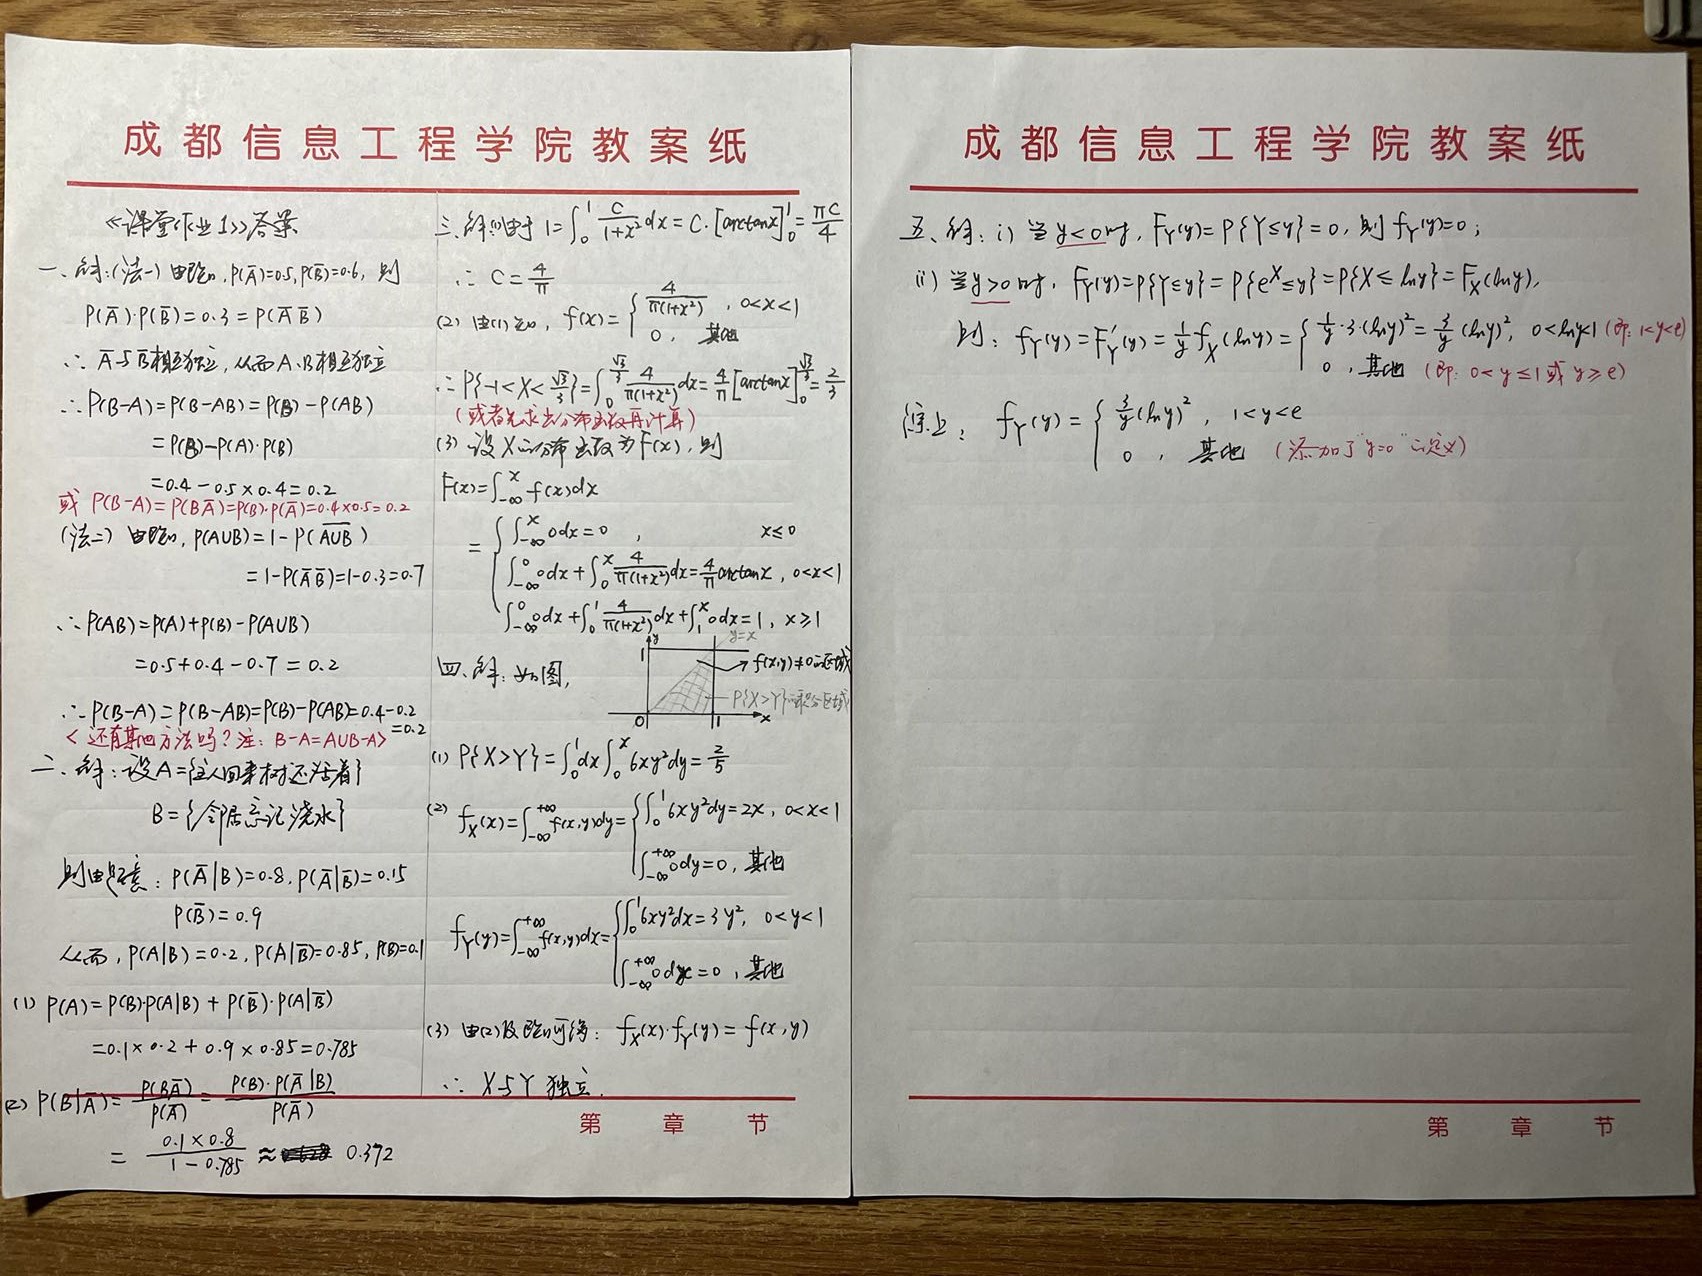 成都信息工程学院教案纸
《课堂作业1》答案
一、解:(法一) 由题知, P(A̅)=0.5, P(B̅)=0.6, 则
P(A̅)·P(B̅)=0.3=P(A̅ B̅)
∴ A̅与B̅相互独立, 从而A、B相互独立
∴ P(B-A)=P(B-AB)=P(B)-P(AB)
=P(B)-P(A)·P(B)
=0.4-0.5×0.4=0.2
或 P(B-A)=P(BA̅)=P(B)·P(A̅)=0.4×0.5=0.2
(法二) 由题知, P(A∪B)=1-P(\overline{A∪B})
=1-P(A̅ B̅)=1-0.3=0.7
∴ P(AB)=P(A)+P(B)-P(A∪B)
=0.5+0.4-0.7=0.2
∴ P(B-A)=P(B-AB)=P(B)-P(AB)=0.4-0.2
=0.2
<还有其他方法吗? 注: B-A=A∪B-A>
二、解: 设A={主人回来树还活着}
B={邻居忘记浇水}
则由题意: P(A̅|B)=0.8, P(A̅|B̅)=0.15
P(B̅)=0.9
从而, P(A|B)=0.2, P(A|B̅)=0.85, P(B)=0.1
(1) P(A)=P(B)·P(A|B)+P(B̅)·P(A|B̅)
=0.1×0.2+0.9×0.85=0.785
(2) P(B|A̅)=P(BA̅)/P(A̅)=P(B)·P(A̅|B)/P(A̅)
=0.1×0.8/(1-0.785)≈0.372
三、解:(1)由于 1=∫₀¹ C/(1+x²) dx=C·[arctanx]₀¹=πC/4
∴ C=4/π
(2) 由(1)知, f(x)={ 4/(π(1+x²)), 0<x<1
0, 其他
∴ P{-1<X<√3/3}=∫₀^{√3/3} 4/(π(1+x²)) dx=4/π[arctanx]₀^{√3/3}=2/3
(或者先求出分布函数再计算)
(3) 设X的分布函数为F(x), 则
F(x)=∫_{-∞}^x f(x)dx
={ ∫_{-∞}^x 0dx=0, x≤0
∫_{-∞}^0 0dx+∫₀^x 4/(π(1+x²)) dx=4/π arctanx, 0<x<1
∫_{-∞}^0 0dx+∫₀¹ 4/(π(1+x²)) dx+∫₁^x 0dx=1, x≥1
四、解: 如图,
y
y=x
1
f(x,y)≠0的区域
P{X>Y}的积分区域
0
1
x
(1) P{X>Y}=∫₀¹dx∫₀^x 6xy²dy=2/5
(2) f_X(x)=∫_{-∞}^{+∞} f(x,y)dy={ ∫₀¹ 6xy²dy=2x, 0<x<1
∫_{-∞}^{+∞} 0dy=0, 其他
f_Y(y)=∫_{-∞}^{+∞} f(x,y)dx={ ∫₀¹ 6xy²dx=3y², 0<y<1
∫_{-∞}^{+∞} 0dx=0, 其他
(3) 由(2)及题知可得: f_X(x)·f_Y(y)=f(x,y)
∴ X与Y独立.
第 章 节
成都信息工程学院教案纸
五、解: i) 当y<0时, F_Y(y)=P{Y≤y}=0, 则 f_Y(y)=0;
ii) 当y>0时, F_Y(y)=P{Y≤y}=P{e^X≤y}=P{X≤lny}=F_X(lny),
则: f_Y(y)=F'_Y(y)=1/y f_X(lny)={ 1/y·3·(lny)²=3/y (lny)², 0<lny<1 (即: 1<y<e)
0, 其他 (即: 0<y≤1或y≥e)
综上: f_Y(y)={ 3/y (lny)², 1<y<e
0, 其他 (添加了"y=0"的定义)
第 章 节